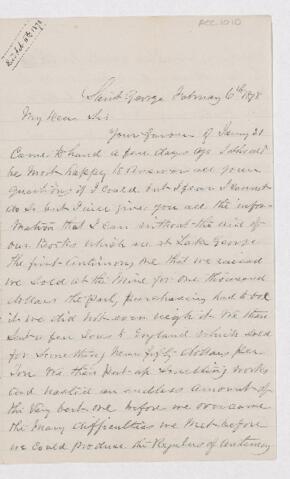 Acc. 1010
Saint George February 6th 1878
My Dear Sir
Your favour of Jany 31
Came to hand a few days ago I should
be most happy to answer all your
questions if I could but I fear I cannot
do so but I will give you all the infor-
mation that I can without the aid of
our Books which are at Lake George
the first Antimony ore that we raised
we sold at the Mine for one thousand
dollars the party purchasing had to
it we did not even weigh it. We then
sent a few Tons to England which sold
for something near fifty dollars per
Ton We then Put up Smelting Works
and wasted an endless amount of
the very best ore before we overcame
the many difficulties we met before
we could produce the Regulus of Antimony